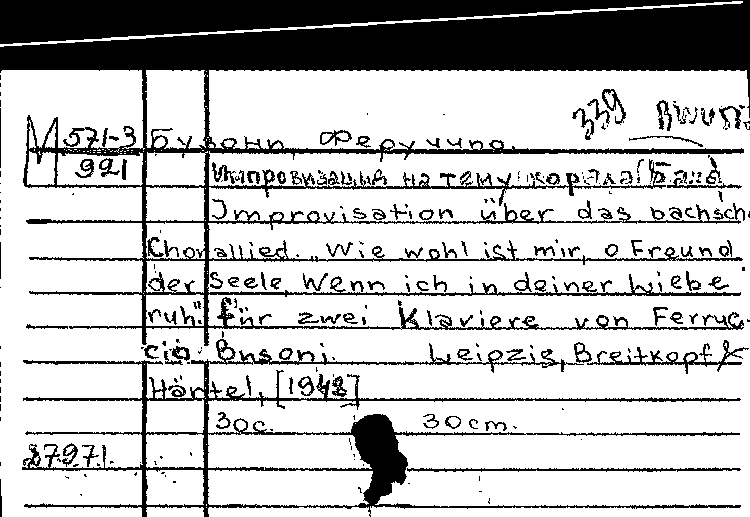 339
М 571-3
921
Бузони, Феруччио.
Импровизация на тему корала Баха
Improvisation über das bachsche
Chorallied „Wie wohl ist mir, o Freund
der Seele, Wenn ich in deiner Liebe
ruh" für zwei Klaviere von Ferruc-
cio Busoni. Leipzig, Breitkopf &
Härtel,
30с. 30cm.
27971.